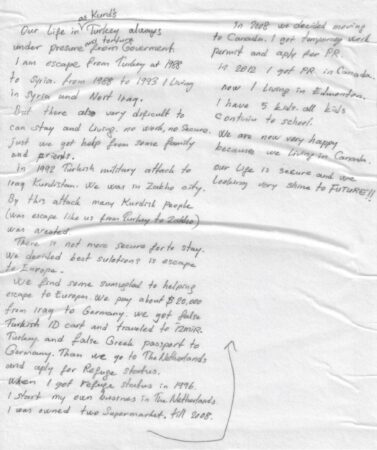 as Kurds
Our Life in Turkey always
and torture
under presure from Goverment.
I am escape from Turkey at 1988
to Syria. from 1988 to 1993 I Living
in Syria and Nort Iraq.
But there also very difficult to
can stay and Living. no work, no secure.
just we get help from some family
and friends.
In 1992 Turkish military attack to
Iraq Kurdistan. We was in Zakho city.
By this attack many Kurdish people
(was escape like us from Turkey to Zakho)
was
There is not more secure for to stay.
We decided best is escape
to Europe.
We find some to helping
escape to Europa. We pay about $20,000
from Iraq to Germany. we got false
Turkish ID cart and traveled to İzmir
Turkey and false Greek passport to
Germany. Than we go to The Netherlands
and aply for Refuge status.
When I got refuge status in 1996.
I start my own business in The Netherlands.
I was owned two Supermarket. till 2008.
In 2008 we decided moving
to Canada. I got temporary work
permit and aply for PR.
in 2012 I got PR in Canada.
now I Living in Edmonton.
I have 5 kids. all kids
contineu to school.
We are now very happy
because we Living in Canada.
our Life is secure and we
Looking very shine to FUTURE!!